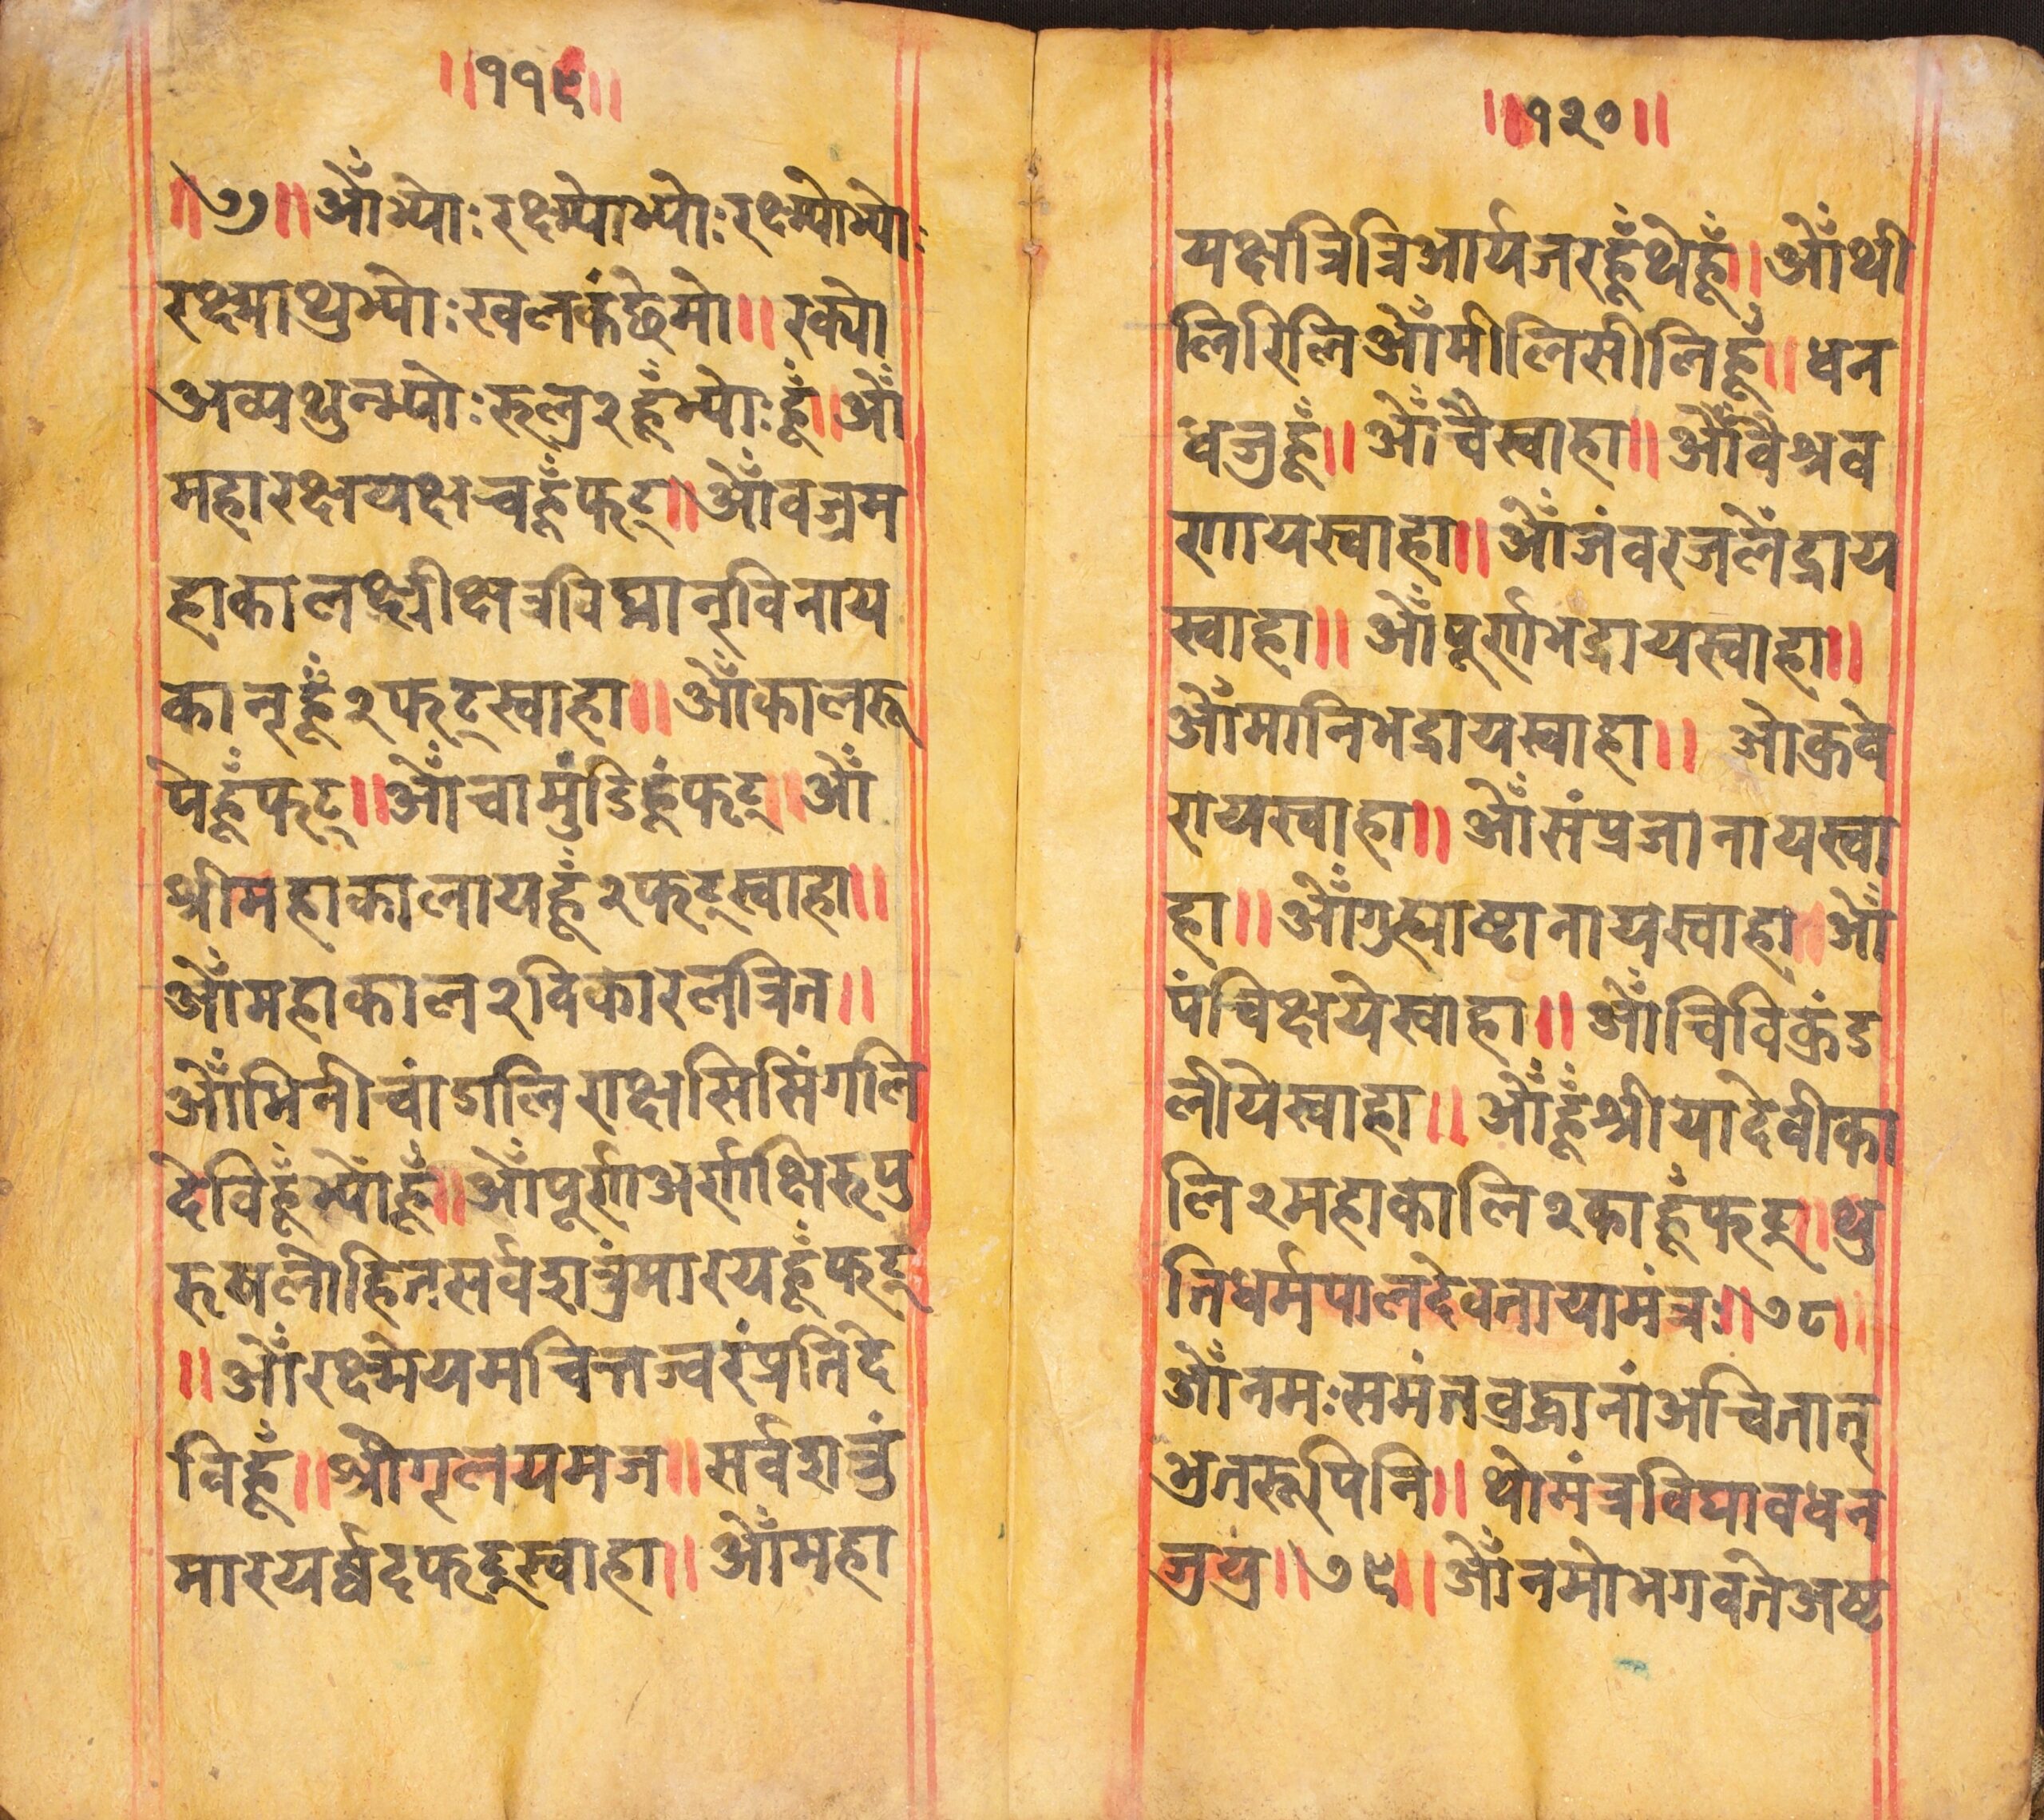 ॥११९॥
॥७॥ ओँभ्योः रक्ष्म्योभ्योः रक्ष्म्योभ्योः
रक्ष्माथुभ्योः खलकंछेमो॥ रक्यो
अव्यथुन्म्योः रुलु२हूँभ्योः हूँ॥ ओँ
महारक्षयक्षचहूँफट्॥ ओँवज्रम
हाकाल
कान्हूँ२फट्स्वाहा॥ ओँकालरू
पेहूँफट्॥ ओँचामुंडिहूंफट्॥ ओँ
श्रीमहाकालायहूँ२फट्स्वाहा॥
ओँमहाकाल२विकारलत्रित॥
ओँभिनीचांडालिराक्षसिसिंगलि
देविहूँभ्योँहूँ॥ ओँपूर्णाअर्णाक्षिरूपु
सर्वशत्रुंमारयहूँफट्
॥ ओँरक्ष्मेयमचित्तज्वरंप्रतिदे
विहूँ॥ श्रीगृलयमज॥ सर्वशत्रुं
मारय फट्स्वाहा॥ ओँमहा
॥१२०॥
यक्षत्रित्रिआर्यजरहूँथेहूँ॥ ओँथी
लिरिलिओँमीलिसीलिहूँ॥ धन
वज्रहूँ॥ ओँवैस्वाहा॥ ओँवैश्रव
णायस्वाहा॥ ओँजंवरजलेंद्राय
स्वाहा॥ ओँपूर्णाभद्रायस्वाहा॥
ओँमानिभद्रायस्वाहा॥ ओक्रवे
रायस्वाहा॥ ओँसंप्रजानायस्वा
हा॥ ओँगुह्याष्टानायस्वाहा॥ ओँ
पंचिक्षयेस्वाहा॥ ओँचिविक्रंड
लीयेस्वाहा॥ ओँहूँश्रीयादेवीका
लि२महाकालि२काहूँफट्॥ थु
तिधर्मपालदेवतायामंत्रः॥ ७८॥
ओँनमःसमंतवुद्धानांअचितात्
भ्रुतरूपिनि॥ थोमंत्रविघावधन
जुयु॥ ७९॥ ओँनमोभगवतेअष्ट